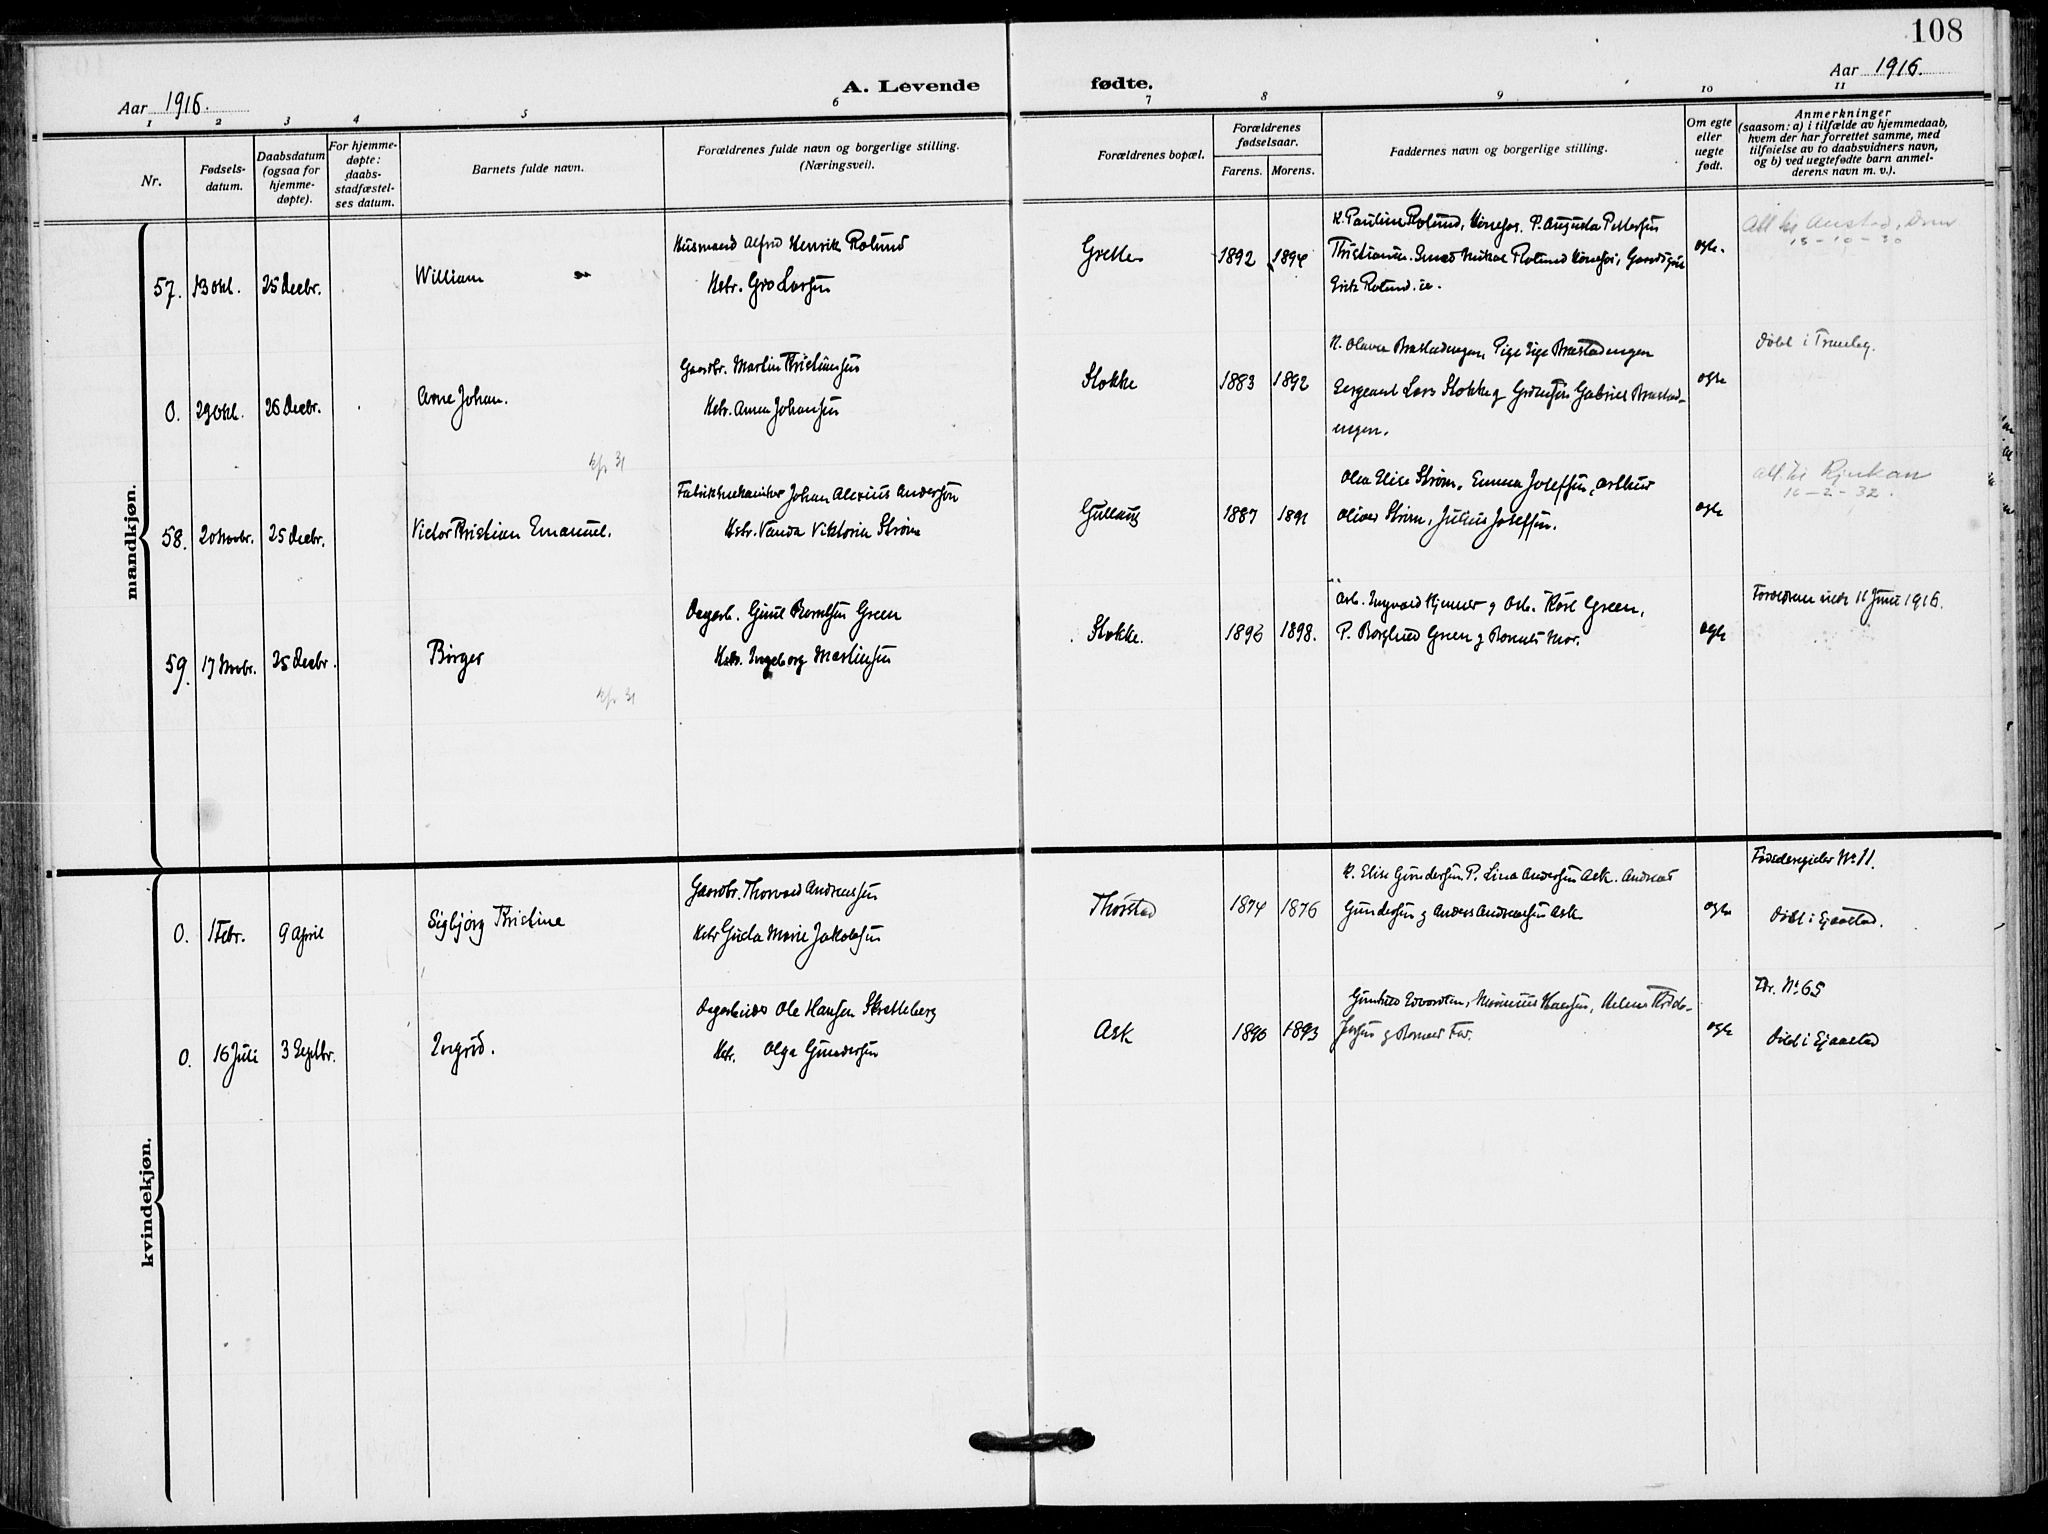 108
Aar 1916.
A. Levende fødte.
Aar 1916.
1 2 3 4 5 6 7 8 9 10 11
Nr.
Fødsels-
datum.
Daabsdatum
(ogsaa for
hjemme-
døpte).
For hjemme-
døpte:
daabs-
stadfæstel-
ses datum.
Barnets fulde navn.
Forældrenes fulde navn og borgerlige stilling.
(Næringsvei).
Forældrenes bopæl.
Forældrenes
fødselsaar.
Farens. Morens.
Faddernes navn og borgerlige stilling.
Om egte
eller
uegte
født.
Anmerkninger
(saasom: a) i tilfælde av hjemmedaab,
hvem der har forrettet samme, med
tilføielse av to daabsvidners navn,
og b) ved uegtefødte barn anmel-
derens navn m. v.).
mandkjøn.
57. 13 okt. 25 Decbr.
William
Husmand Alfred Henrik Rolund
Hstr. Gro Larsen
Grette
1892 1894
K. Pauline Rolund, Hønefos. P. Augusta Pettersen
Kristiania. Smed Mikal Rolund Hønefos, Gaardsgut
Erik Rolund. ib.
egte.
Att til
15-10-30
0. 29 okt. 26 Decbr.
Arne Johan.
Gaardbr. Martin Kristiansen
Hstr. Anna Johansen
Stokke
1883 1892
K. Olava Brastadengen, Pige Sige Brastadengen
Sergeant Lars Stokke g Grdmsøn Gabriel Brastad-
engen.
egte
Døbt i
kfr 31
58. 20 Novbr. 25 Decbr.
Victor Kristian Emanuel.
Fabrikmekaniker Johan Alexius Anderson
Hstr. Vanda Viktoria Strøm
Gullaug
1887 1891
Olea Elise Strøm, Emma Josefsen, Arthur
Oliver Strøm, Julius Josefsen.
egte
Att. til Rjukan
16-2-32.
59. 17 Novbr. 25 Decbr.
Birger
Dagarb. Gunt Berntsen Green
Hstr. Ingeborg Martinsen
Stokke.
1896 1898.
Arb. Ingvald Hjemer g Arb. Kåre Green,
P. Borghild Green g Barnets Mor.
egte
Forældrene viede 11 Juni 1916.
kfr 31
kvindekjøn.
0. 1 Febr. 9 April
Sigbjørg Kristine
Gaardbr. Thorvald Andreassen
Hstr Guda Marie Jakobsen
Thorstad
1874 1876
K. Elise Gundersen. P. Lina Andersen Ask. Andreas
Gundersen g Anders Andreassen Ask
egte
Fødselsregister No 11.
Døbt i Sjaastad.
0. 16 Juli 3 Septbr.
Ingrid.
Dagarbeider Ole Hansen Skretteberg
Hstr. Olga Gundersen
Ask
1890 1893
Gunhild Edvardsen, Marinius Hansen, Helene Kristo-
fersen g Barnets Far.
egte
Fdr. No 65
Døbt i Sjaastad